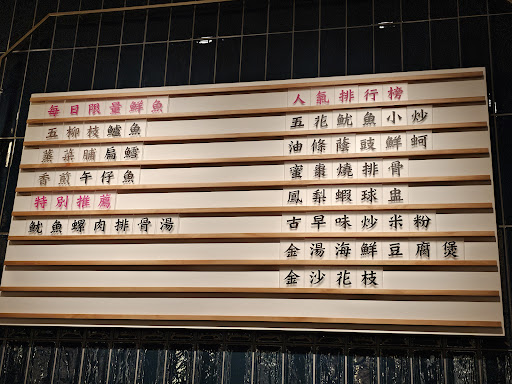 每日限量鮮魚
五柳枝鱸魚
蔭菜脯扁鱈
香煎午仔魚
特別推薦
魷魚螺肉排骨湯
人氣排行榜
五花魷魚小炒
油條蔭豉鮮蚵
蜜棗燒排骨
鳳梨蝦球盅
古早味炒米粉
金湯海鮮豆腐煲
金沙花枝